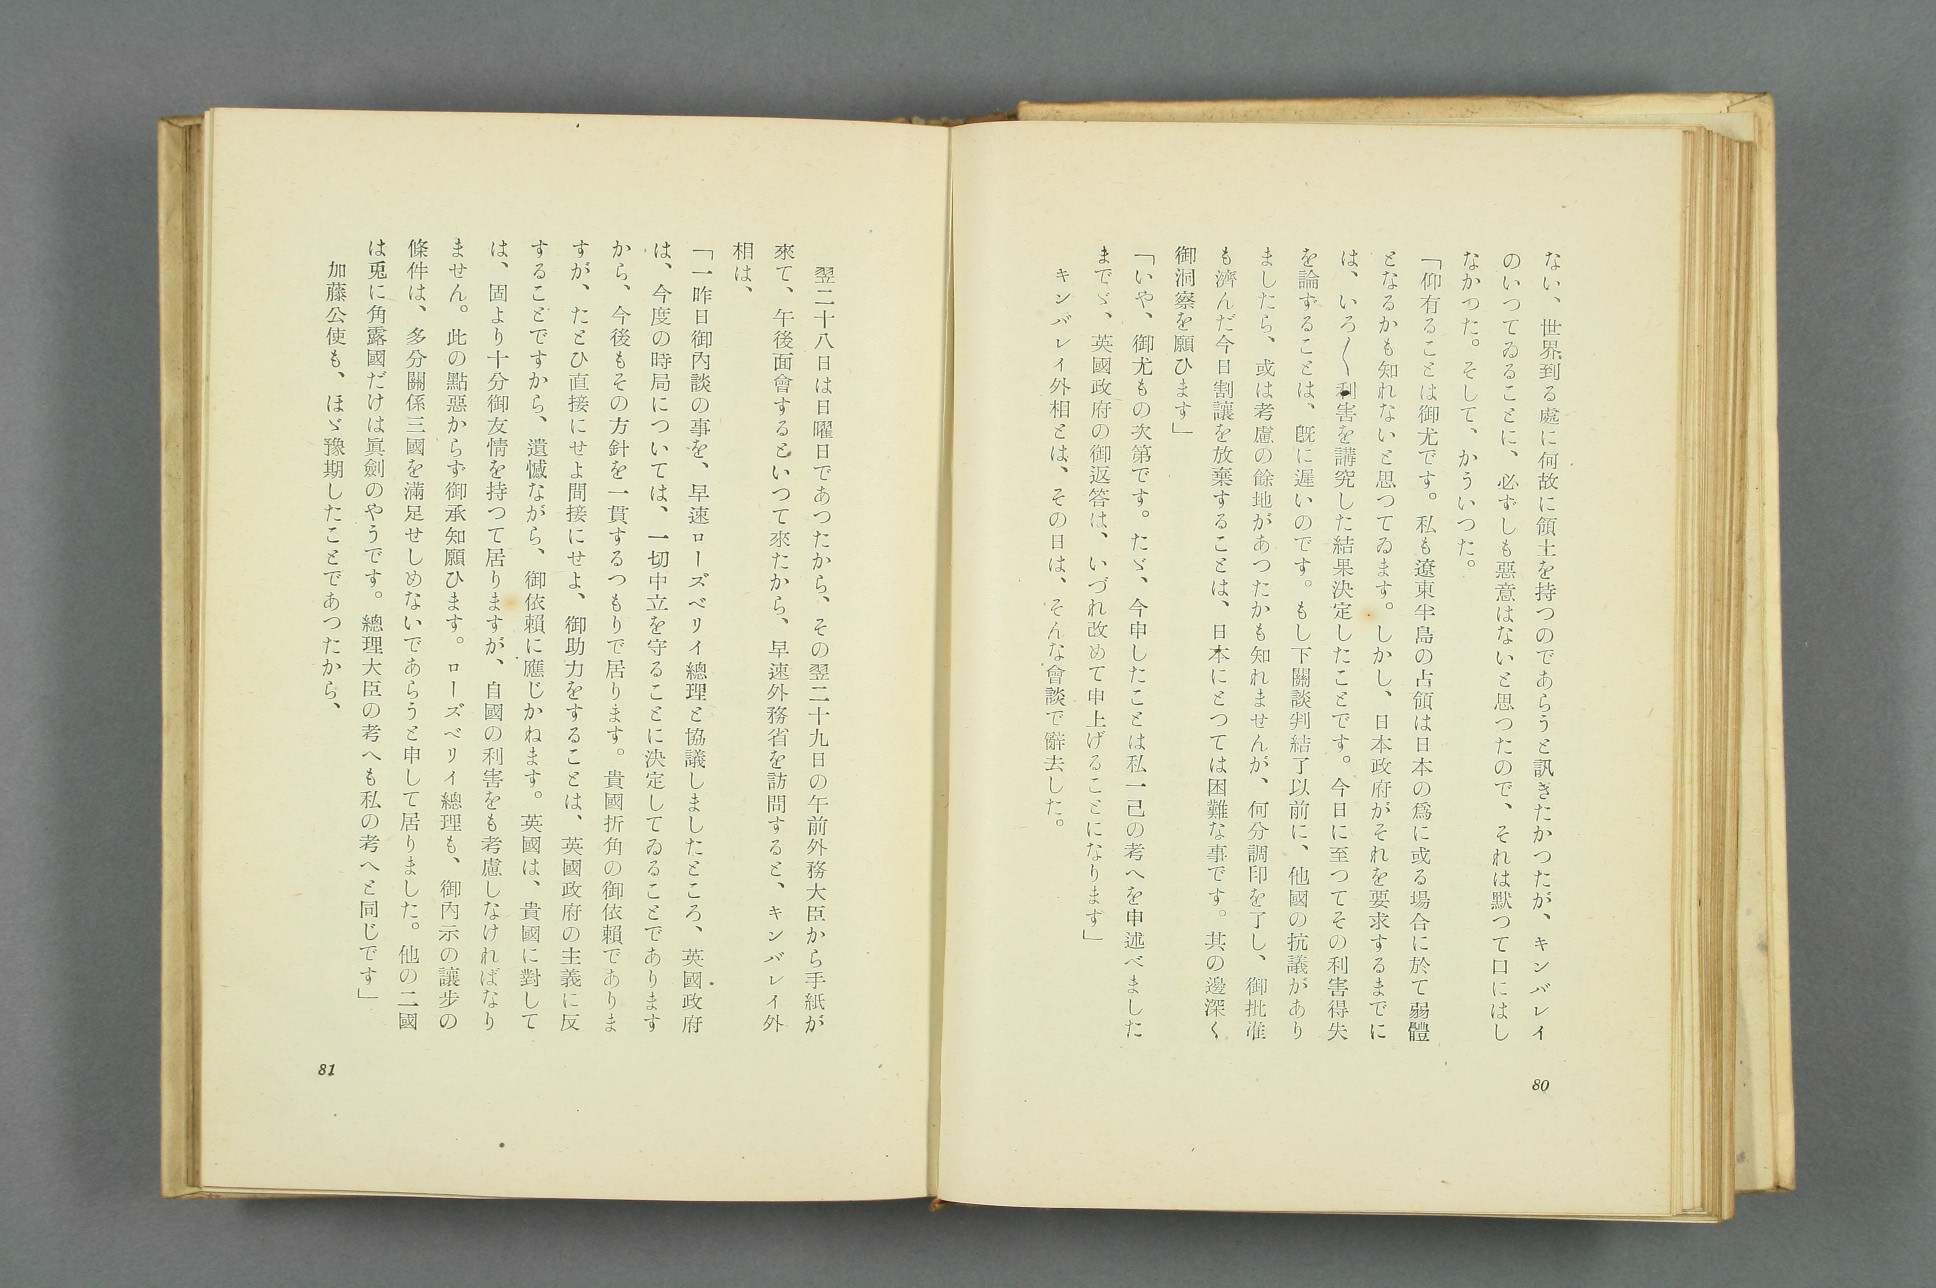 ない、世界到る處に何故に領土を持つのであらうと訊ぎたかつたが、キンバレイ
のいつてゐることに、必ずしも惡意はないと思つたので、それは默つて口にはし
なかつた。そして、かういつた。
「仰有ることは御尤です。私も遼東半島の占領は日本の爲に或る場合に於て弱體
となるかも知れないと思つてゐます。しかし、日本政府がそれを要求するまでに
は、いろ〱利害を講究した結果決定したことです。今日に至つてその利害得失
を論ずることは、既に遲いのです。もし下關談判結了以前に、他國の抗議があり
ましたら、或は考慮の餘地があつたかも知れませんが、何分調印を了し、御批准
も濟んだ今日割讓を放棄することは、日本にとつては困難な事です。其の邊深く
御洞察を願ひます」
「いや、御尤もの次第です。たゞ、今申したことは私一己の考へを申述べました
までゞ、英國政府の御返答は、いづれ改めて申上げることになります」
キンバレイ外相とは、その日は、そんな會談で辭去した。
80
翌二十八日は日曜日であつたから、その翌二十九日の午前外務大臣から手紙が
來て、午後面會するといつて來たから、早速外務省を訪問すると、キンバレイ外
相は、
「一昨日御內談の事を、早速ローズベリイ總理と協議しましたところ、英國政府
は、今度の時局については、一切中立を守ることに決定してゐることであります
から、今後もその方針を一貫するつもりで居ります。貴國折角の御依賴でありま
すが、たとひ直接にせよ間接にせよ、御助力をすることは、英國政府の主義に反
することですから、遺憾ながら、御依賴に應じかねます。英國は、貴國に對して
は、固より十分御友情を持つて居りますが、自國の利害をも考慮しなければなり
ません。此の點惡からず御承知願ひます。ローズベリイ總理も、御內示の讓步の
條件は、多分關係三國を滿足せしめないであらうと申して居りました。他の二國
は兎に角露國だけは眞劍のやうです。總理大臣の考へも私の考へと同じです」
加藤公使も、ほゞ豫期したことであつたから、
81